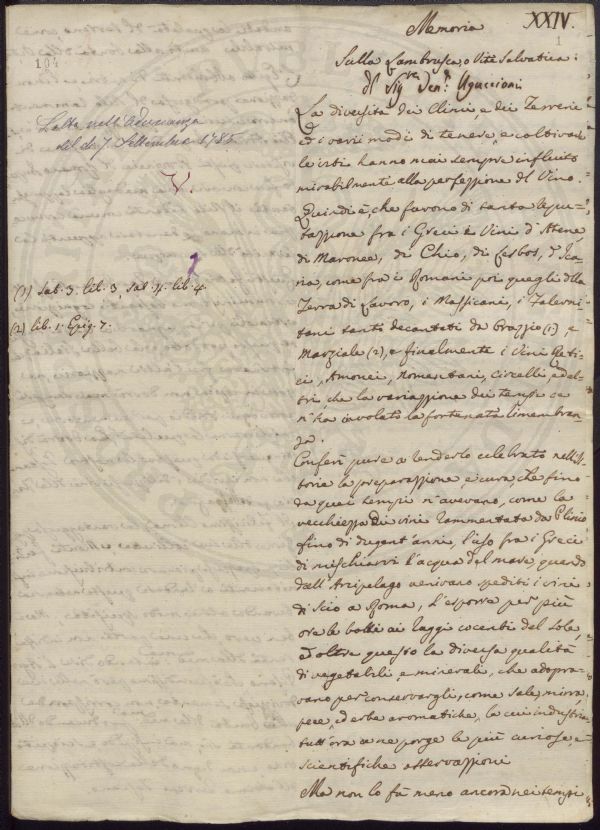 XXIV.
1
104
Memoria
Sulla Lambrusca, o Vite Salvatica:
Del Sigre Sen.e Uguccioni
Letta nell'Adunanza
del dì 7 Settembre 1785
V.
La diversità dei Climi, e dei Terreni
ed i varii modi di tenere, e coltivare
le viti hanno mai sempre influito
mirabilmente alla perfezzione del Vino.
Quindi è, che furono di tanta repu-
tazzione fra i Greci i Vini d'Atene
di Maronea, di Chio, di Lesbos, d'Ica
ria, come fra i Romani poi quegli della
Terra di Lavoro, i Massicani, i Falerni-
tani tanto decantati da Orazzio (1) e
Marziale (2), e finalmente i Vini
Amonei, Nomentani, Circelli, ed al-
tri, che la variazzione dei tempi ce
n'ha involato la fortunata rimembran-
za.
(1) Sat. 3. lib. 3, Sat. 4. lib. 4.
(2) lib. 1. Epig. 7.
Conferì pure a renderlo celebrato nell'Is-
toria la preparazzione e cura, che fino
da quei tempi n'avevano, come la
vecchiezza dei vini rammentata da Plinio
fino di dugent'anni, l'uso fra i Greci
di mischiarvi l'acqua del mare, quando
dall'Arcipelago venivano spediti i vini
di Scio a Roma, l'esporre per più
ore le botti ai raggi cocenti del Sole,
ed oltre questo la diversa qualità
di vegetabili, e minerali, che adopra-
vano per conservargli, come Sale, mirra,
pece, ed erbe aromatiche, la cui industria
tutt'ora ce ne porge le più curiose, e
scientifiche osservazzioni
Ma non lo fu meno ancora nei tempi